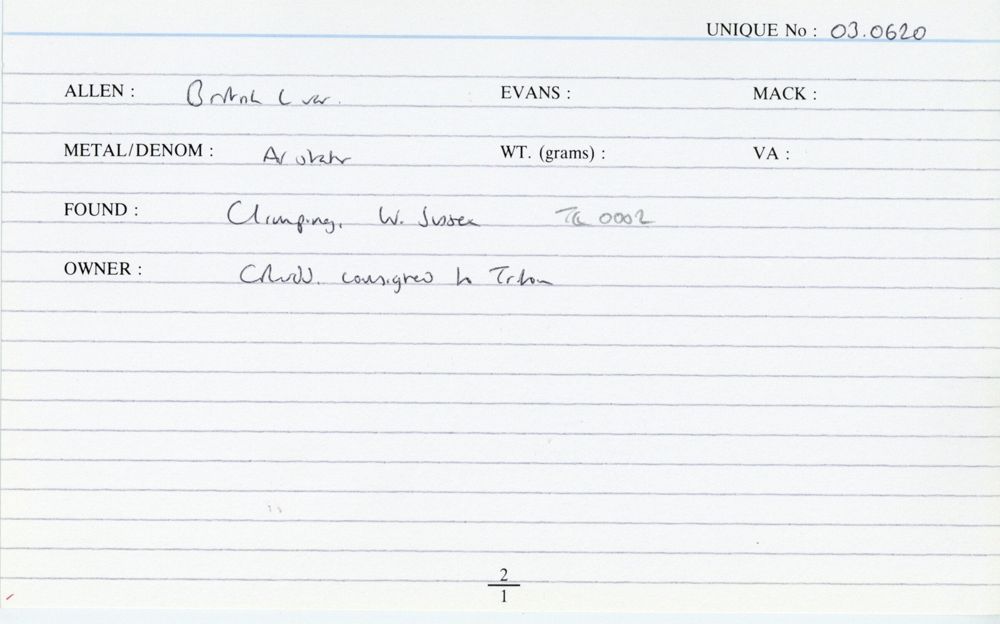 UNIQUE No : 03.0620
ALLEN : British L var. EVANS : MACK :
METAL/DENOM : AV stater WT. (grams) : VA :
FOUND : Climping, W. Sussex TQ 0002
OWNER : consigned to Triton
2
1